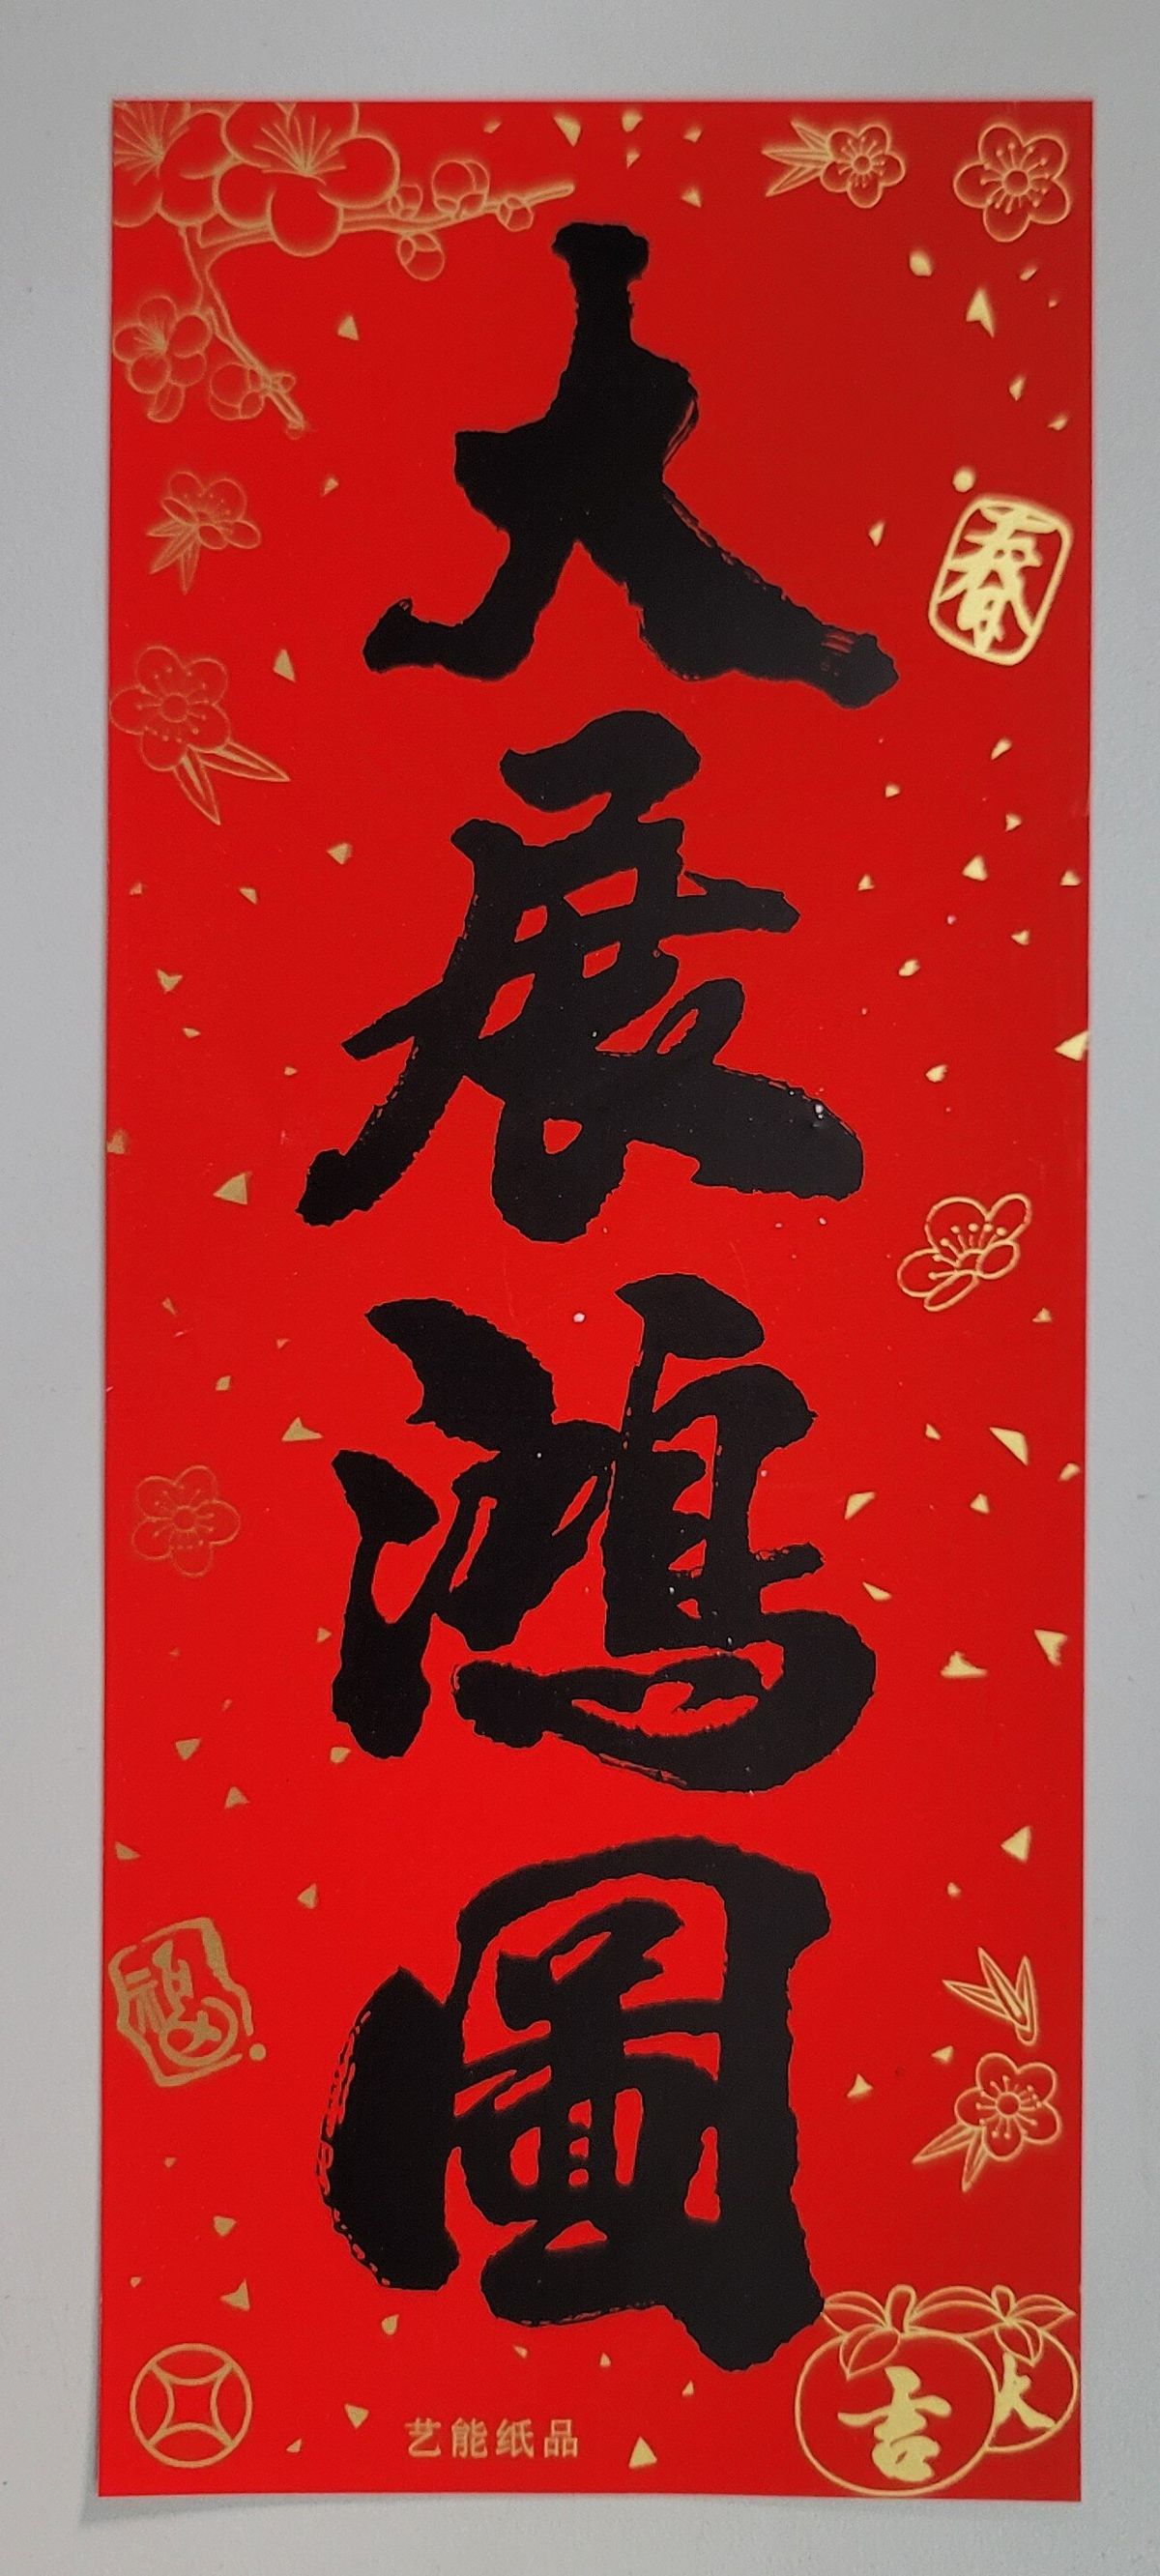 大展鴻圖
春
福
大吉
艺能纸品